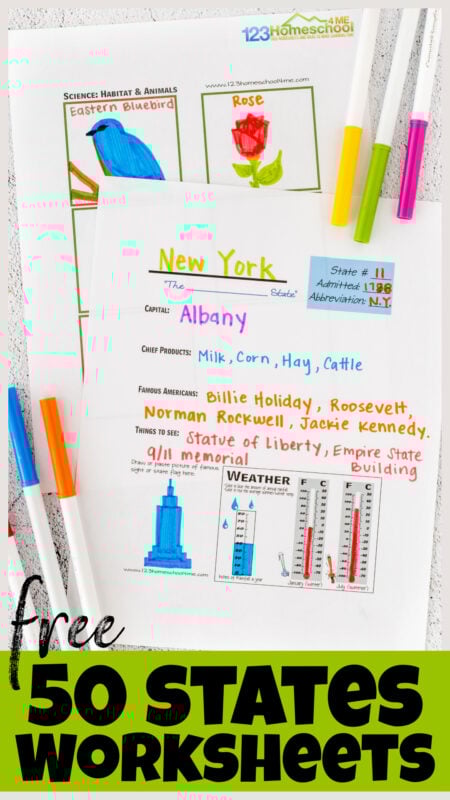 123 Homeschool 4 ME
www.123homeschool4me.com
SCIENCE: HABITAT & ANIMALS
Eastern Bluebird
Rose
New York
"The ____________ State"
State # 11
Admitted: 1788
Abbreviation: N.Y.
CAPITAL: Albany
CHIEF PRODUCTS: Milk, Corn, Hay, Cattle
FAMOUS AMERICANS: Billie Holiday, Roosevelt,
Norman Rockwell, Jackie Kennedy.
THINGS TO SEE: Statue of Liberty, Empire State
Building
9/11 memorial
Draw or paste picture of famous
sight or state flag here.
WEATHER
F C
F C
January (winter)
July (summer)
www.123homeschool4me.com
free
50 STATES
WORKSHEETS